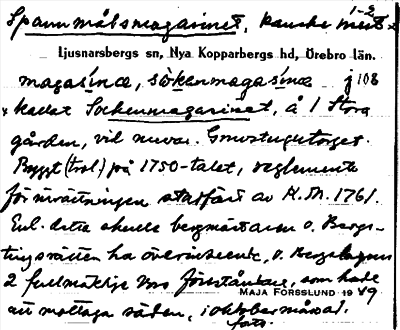 Spannmålsmagasinet, kanske mest 1-2
Ljusnarsbergs sn, Nya Kopparbergs hd, Örebro län.
magasínæ, såkenmagasínæ j 108
kallat Sockenmagasinet, å l Stora
gården, vid nuvar. Gruvstugutorget.
Byggt (trol.) på 1750-talet, reglemente
för inrättningen stadfäst av K. M. 1761.
Enl. detta skulle bergmästaren o. Bergs-
tingsrätten ha överinseende, o. Bergslagens
2 fullmäktige vara föreståndare, som hade
MAJA FORSSLUND 1949
att mottaga säden, i oktober månad.
foto.